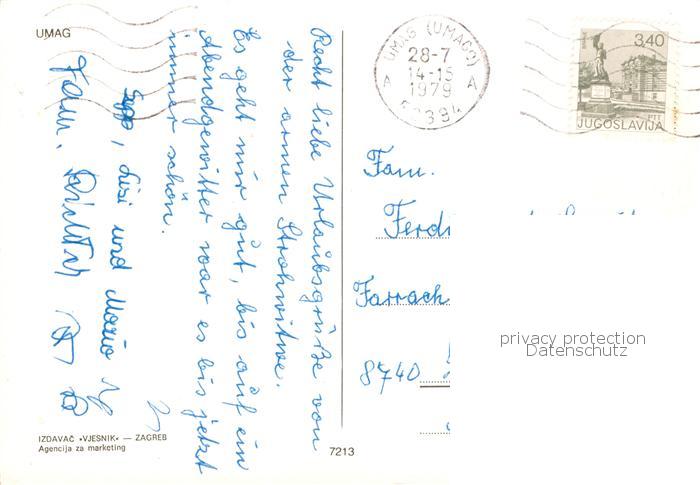 UMAG
UMAG (UMAGO)
28-7
14-15
1979
A A
52394
3,40
PTT
JUGOSLAVIJA
Recht liebe Urlaubsgrüße von
der armen Strohwitwe.
Es geht mir gut, bis auf ein
Abendgewitter war es bis jetzt
immer schön.
Sepp, Lisi und Mario
Fam.
Fam.
Ferdi
Farrach
8740
privacy protection
Datenschutz
IZDAVAČ »VJESNIK« — ZAGREB
Agencija za marketing
7213